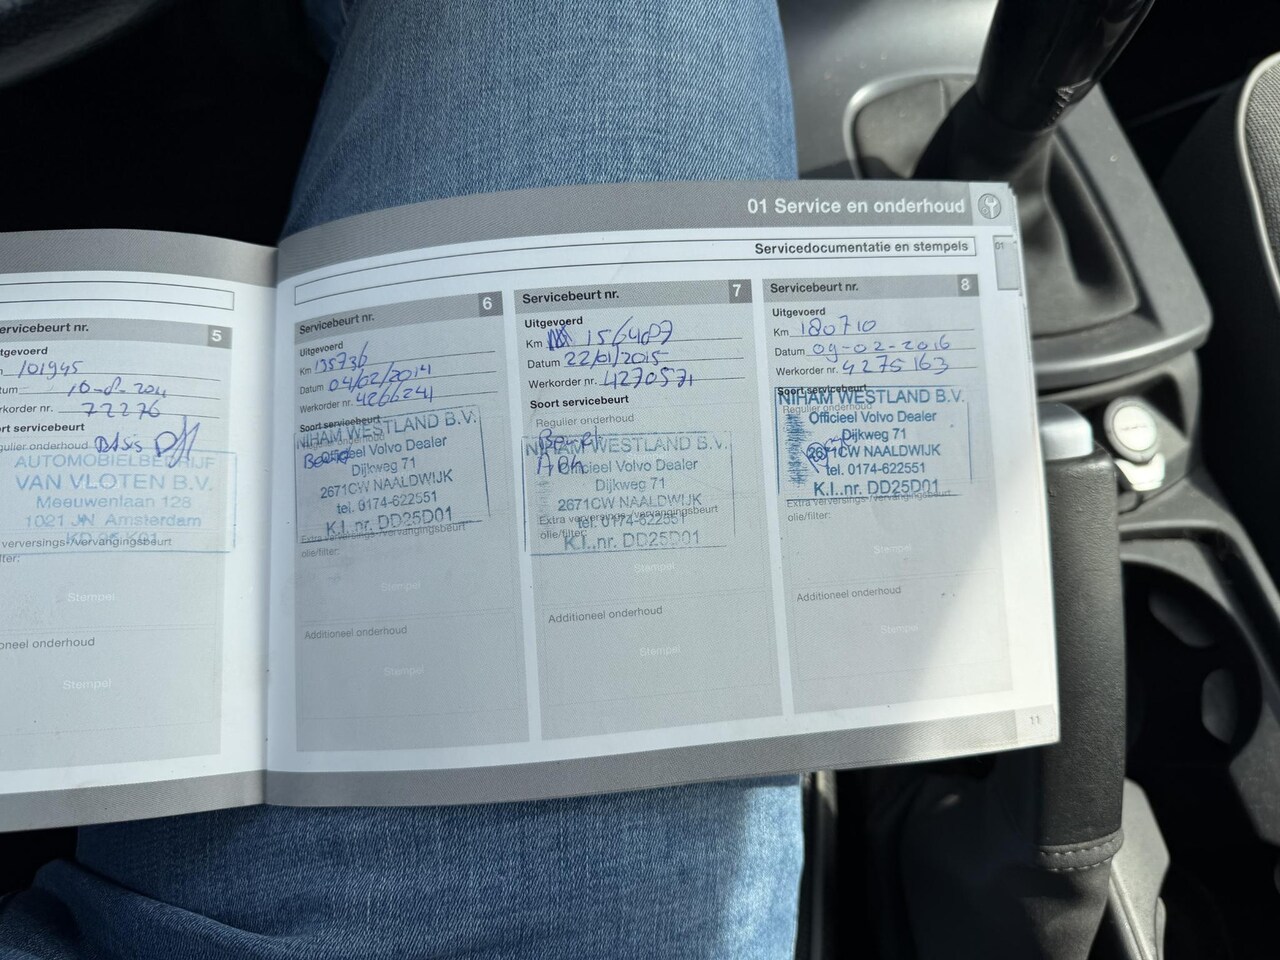 01 Service en onderhoud
01
Servicedocumentatie en stempels
ervicebeurt nr. 5
tgevoerd
101945
tum
Werkorder nr. 72276
ort servicebeurt
gulier onderhoud Basis
AUTOMOBIELBEDRIJF
VAN VLOTEN B.V.
Meeuwenlaan 128
1021 JN Amsterdam
verversings-/vervangingsbeurt
lter:
Stempel
oneel onderhoud
Stempel
Servicebeurt nr. 6
Uitgevoerd
Km 135736
Datum 04/02/2014
Werkorder nr. 4266241
Soort servicebeurt
NIHAM WESTLAND B.V.
Officieel Volvo Dealer
Dijkweg 71
2671CW NAALDWIJK
tel. 0174-622551
K.I..nr. DD25D01
Extra verversings-/vervangingsbeurt
olie/filter:
Stempel
Additioneel onderhoud
Stempel
Servicebeurt nr. 7
Uitgevoerd
Km 156407
Datum 22/01/2015
Werkorder nr. 4270571
Soort servicebeurt
Regulier onderhoud
Beurt
NIHAM WESTLAND B.V.
APK
Officieel Volvo Dealer
Dijkweg 71
2671CW NAALDWIJK
Extra verversings-/vervangingsbeurt
tel. 0174-622551
olie/filter:
K.I..nr. DD25D01
Stempel
Additioneel onderhoud
Stempel
Servicebeurt nr. 8
Uitgevoerd
Km 180710
Datum 09-02-2016
Werkorder nr. 4275163
Soort servicebeurt
NIHAM WESTLAND B.V.
Regulier onderhoud
Officieel Volvo Dealer
Dijkweg 71
2671CW NAALDWIJK
tel. 0174-622551
K.I..nr. DD25D01
Extra verversings-/vervangingsbeurt
olie/filter:
Stempel
Additioneel onderhoud
Stempel
11